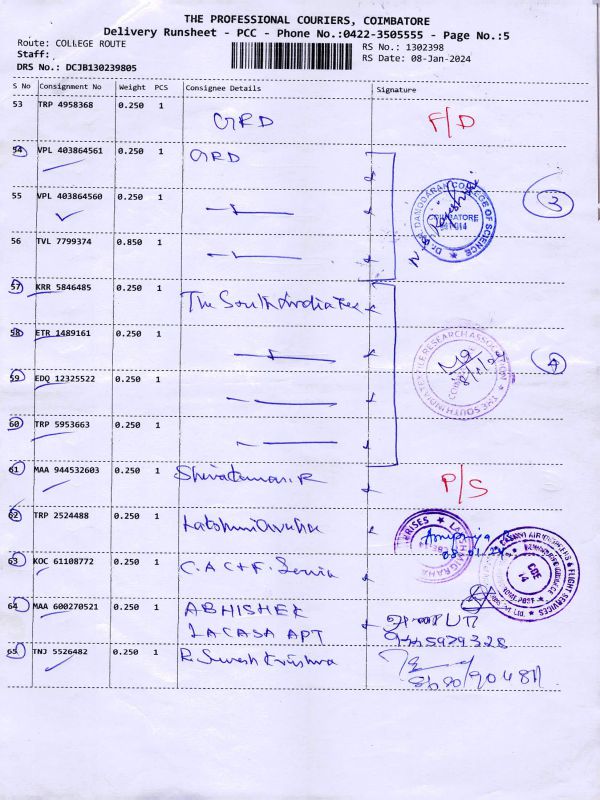 THE PROFESSIONAL COURIERS, COIMBATORE
Delivery Runsheet - PCC - Phone No.:0422-3505555 - Page No.:5
Route: COLLEGE ROUTE
RS No.: 1302398
Staff:
RS Date: 08-Jan-2024
DRS No.: DCJB130239805
S No Consignment No Weight PCS Consignee Details Signature
53 TRP 4958368 0.250 1 GRD F/D
54 VPL 403864561 0.250 1 GRD
55 VPL 403864560 0.250 1
COIMBATORE
641014
COLLEGE OF SCIENCE
3
56 TVL 7799374 0.850 1
57 KRR 5846485 0.250 1 The South India Tex
58 ETR 1489161 0.250 1
THE SOUTH INDIA TEXTILE RESEARCH ASSOCIATION
4
59 EDQ 12325522 0.250 1
60 TRP 5953663 0.250 1
61 MAA 944532603 0.250 1 Shivakumar.R P/S
62 TRP 2524488 0.250 1
63 KOC 61108772 0.250 1 C.A C+F. Servia
FLIGHT SERVICES
64 MAA 600270521 0.250 1 ABHISHEK
LACASA APT
65 TNJ 5526482 0.250 1 R. Suresh Krishna